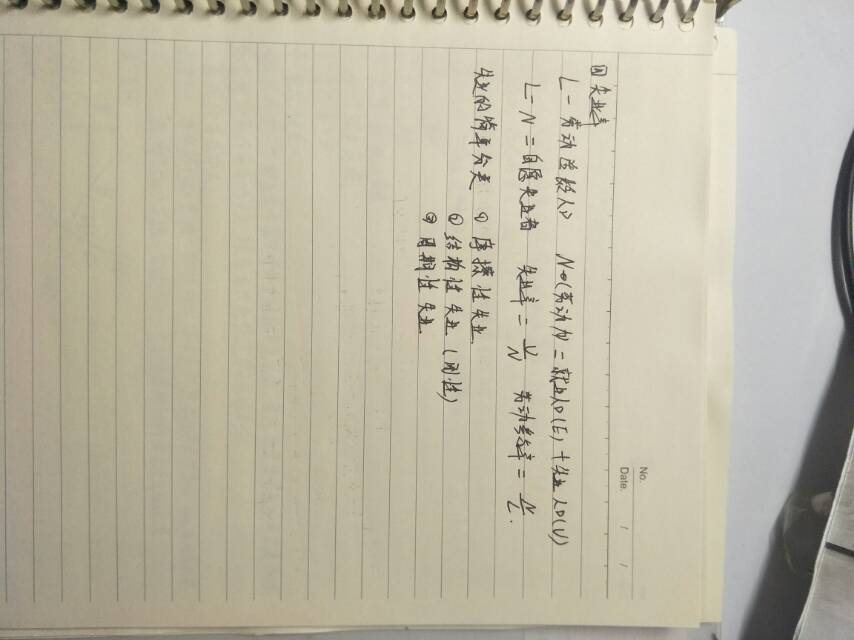 No.
Date. / /
回 失业率
L - 劳动适龄人口 N(劳动力) = 就业人口(E) + 失业人口(U)
L - N = 自愿失业者 失业率 = U/N 劳动参与率 = N/L.
失业的简单分类 ① 摩擦性失业
② 结构性失业 (刚性)
③ 周期性失业